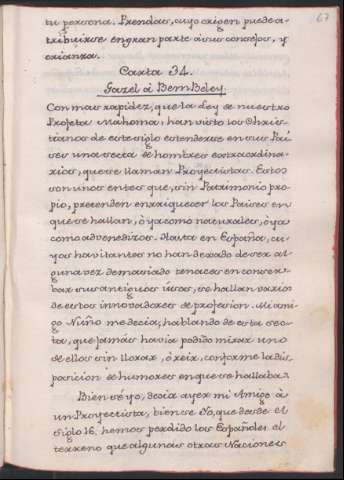 67
tu persona. Prendas, cuyo origen puede a-
tribuirse en gran parte à sus consejos, y
crianza.
Carta 34.
Gazel à BemBeley
Con mas rapidez, que la Ley de nuestro
Profeta Mahoma, han visto los Chris-
tianos de este siglo estenderse en sus Paî-
ses una secta de hombres extraordina-
rios, que se llaman Proyectistas. Estos
son unos entes que, sin Patrimonio pro-
pio, pretenden enrriquecer los Paises en
que se hallan, ò ya como naturales, ò ya
como advenedizos. Hasta en España, cu-
yos havitantes no han dexado de ser al-
guna vez demasiado tenaces en conser-
bar sus antiguos usos, se hallan varios
de estos innovadores de profesion. Mi ami-
go Nuño me decia, hablando de esta sec-
ta, que jamàs havia podido mirar uno
de ellos sin llorar, ò reir, conforme la dis-
posicion de humores en que se hallaba.
Bien sè yo, decia ayer mi Amigo à
un Proyectista, bien se Yo, que desde el
Siglo 16. hemos perdido los Españoles el
terreno que algunas otras Naciones